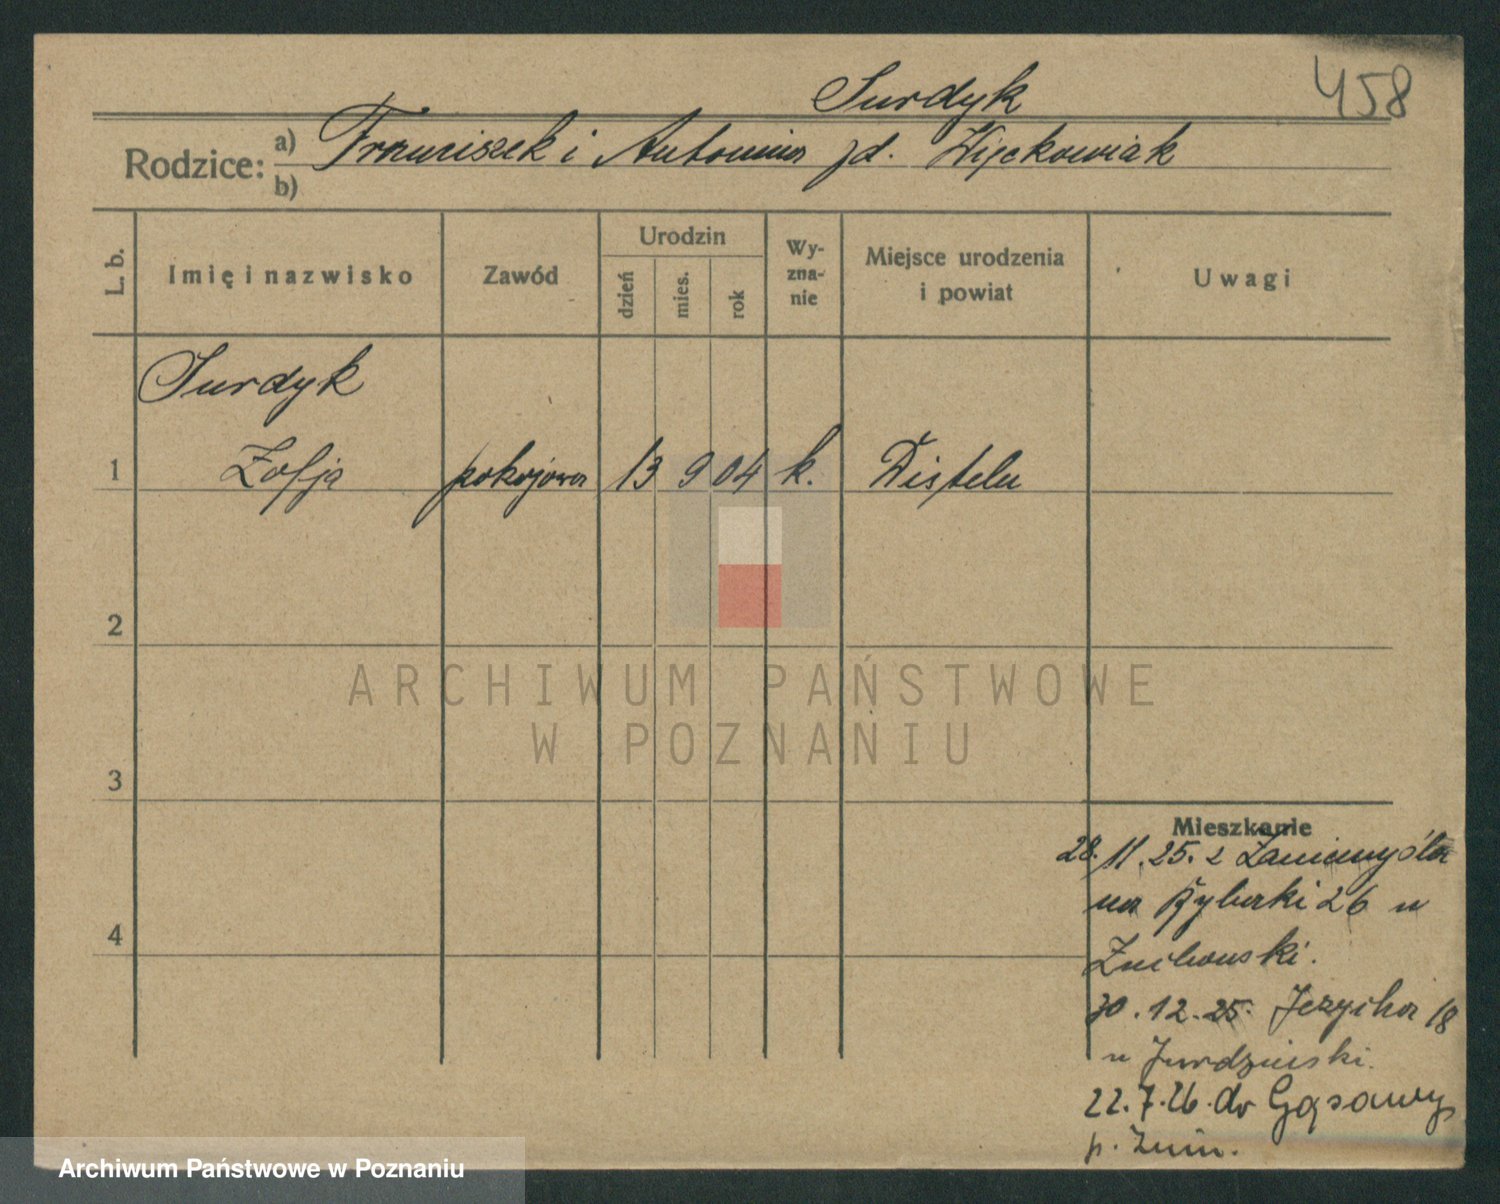 458
Surdyk
Rodzice: a) Franciszek i Antonina zd. Więckowiak
b)
L. b.
Imię i nazwisko
Zawód
Urodzin
dzień
mies.
rok
Wy-
zna-
nie
Miejsce urodzenia
i powiat
Uwagi
Surdyk
1 Zofja pokojowa 13 9 04 k.
2
3
4
ARCHIWUM PAŃSTWOWE
W POZNANIU
Mieszkanie
28.11.25. z Zaniemyśla
na Rybaki 26 u
30.12.25. Jeżycka 18
u
22.7.26. do Gąsawy
p. Żnin.
Archiwum Państwowe w Poznaniu